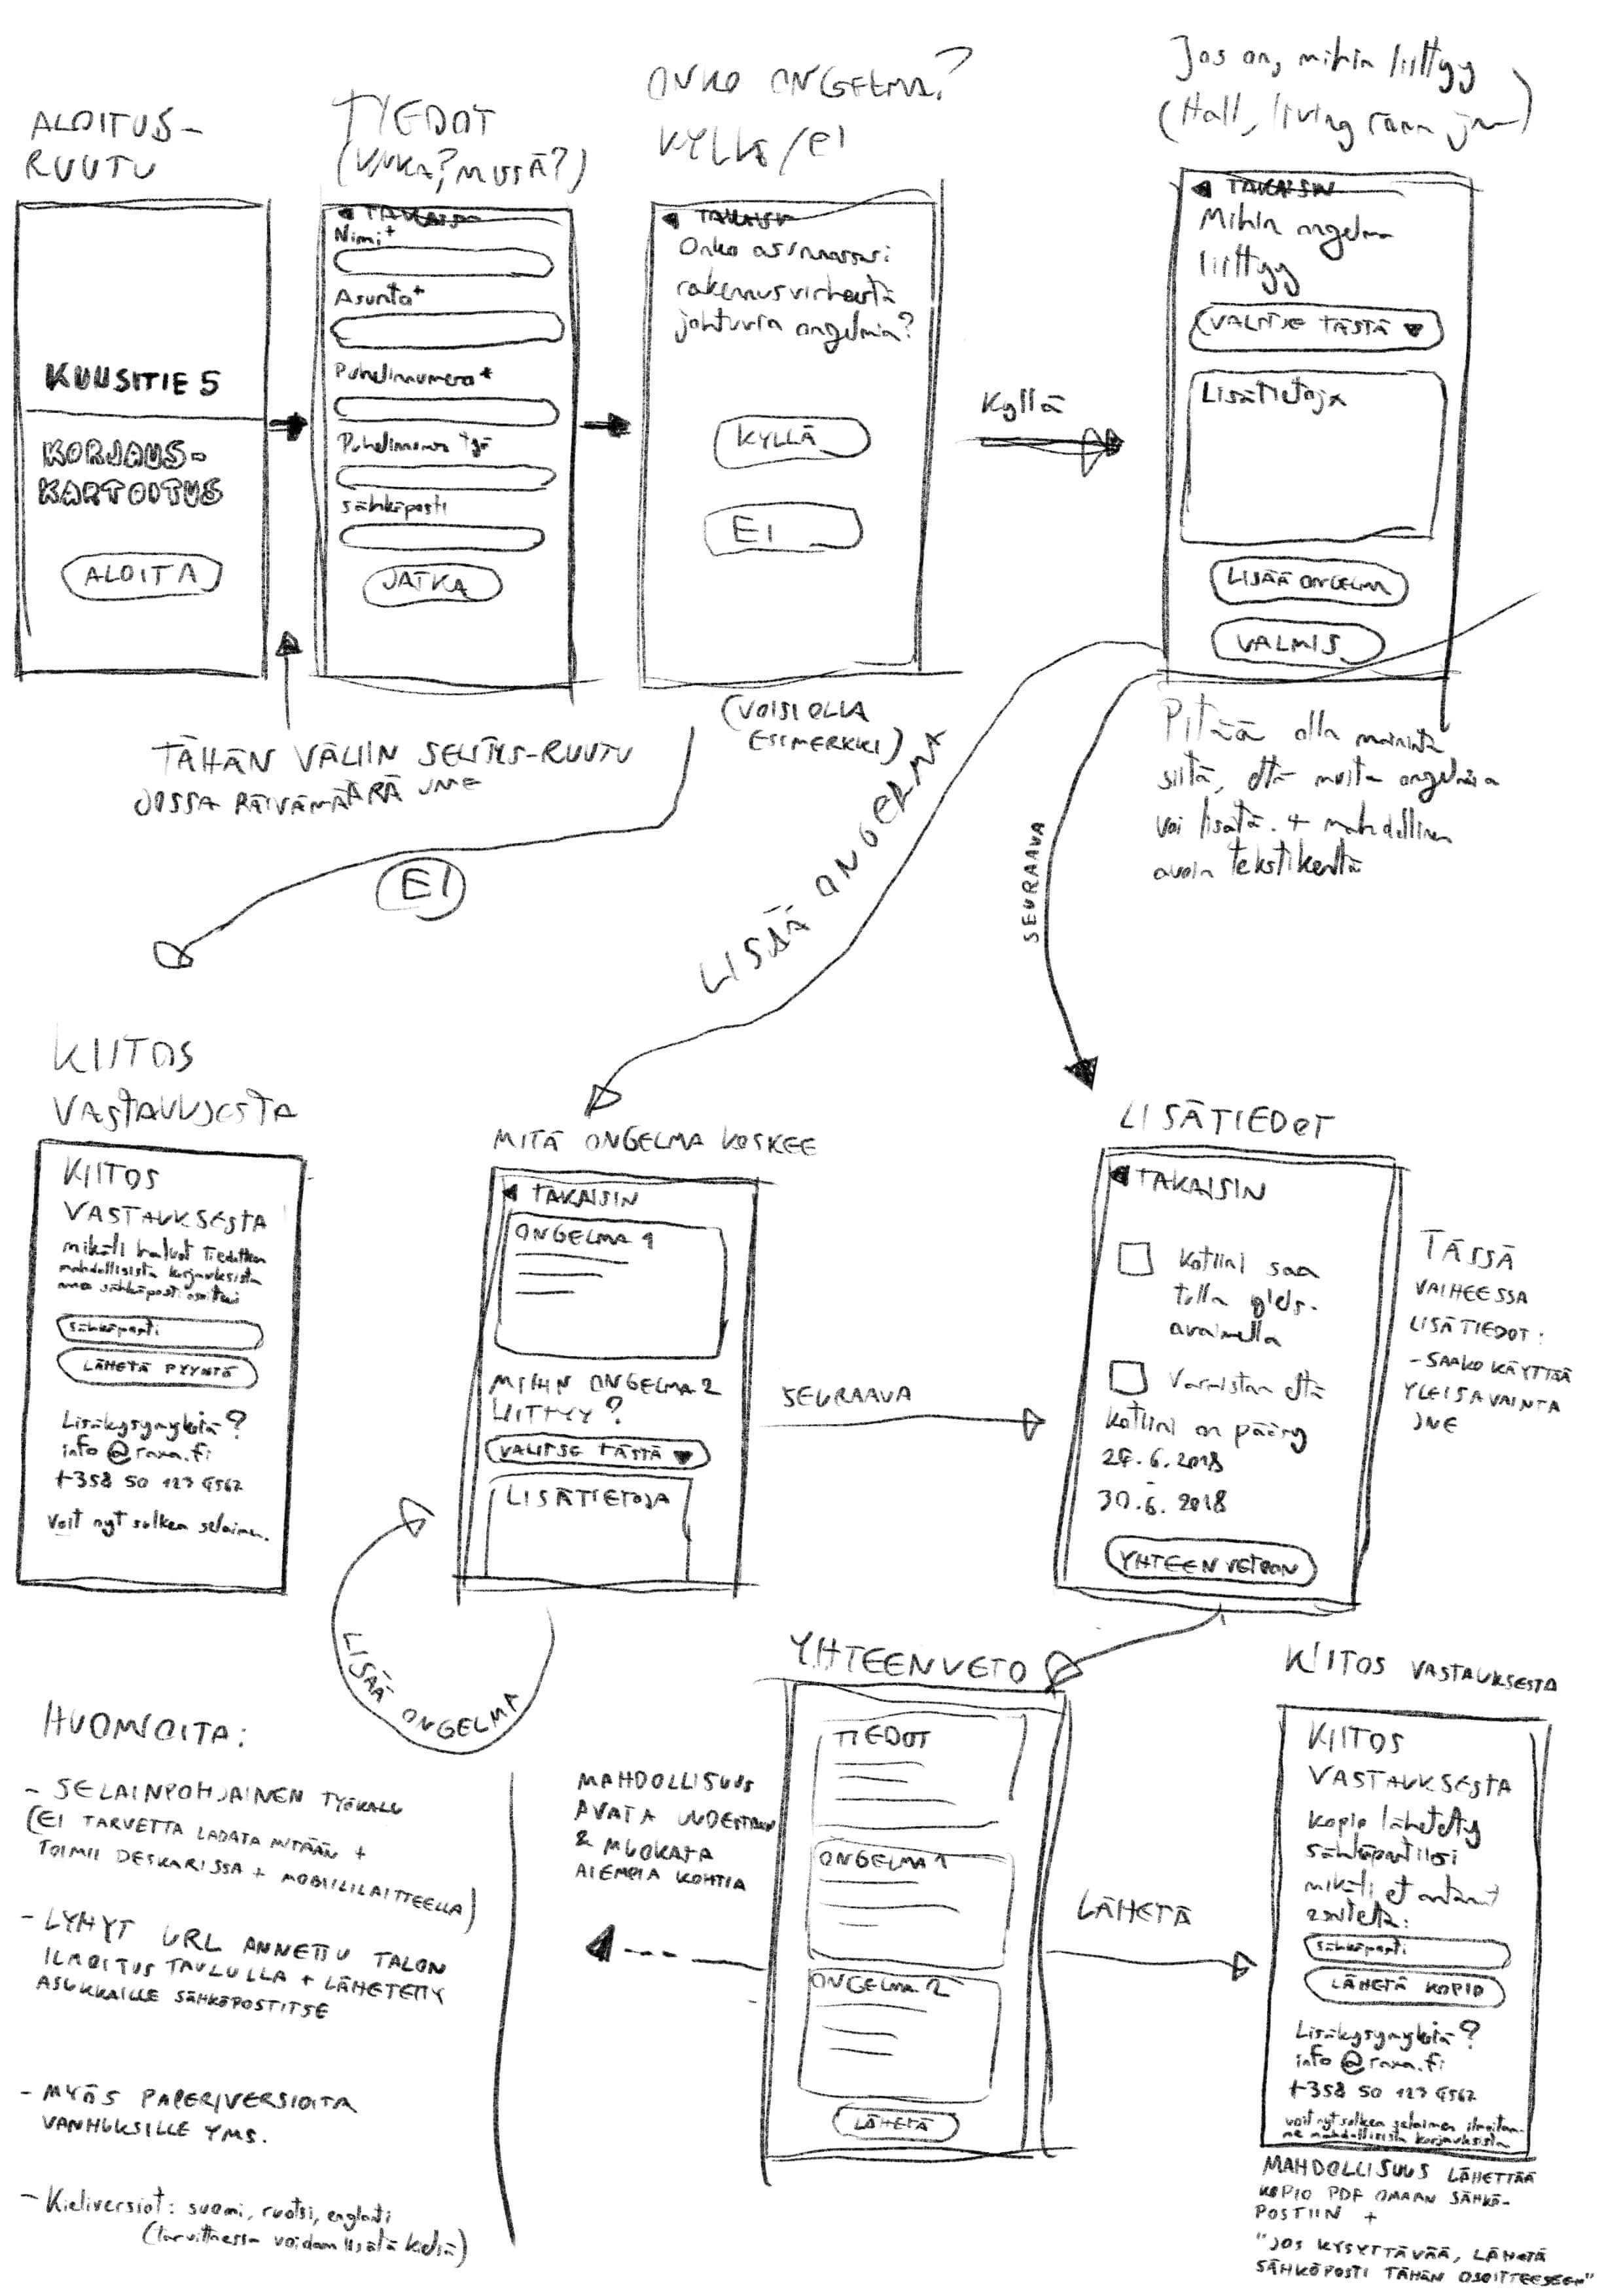 ALOITUS-
RUUTU
KUUSITIE 5
KORJAUS-
KARTOITUS
ALOITA
TIEDOT
(KUKA? MISSÄ?)
TAKAISIN
Nimi*
Asunto*
Puhelinnumero*
Puhelinnumero työ
sähköposti
JATKA
TÄHÄN VÄLIIN SELITYS-RUUTU
JOSSA PÄIVÄMÄÄRÄ JNE
ONKO ONGELMA?
KYLLÄ/EI
TAKAISIN
Onko asunnossasi
rakennusvirheestä
johtuvia ongelmia?
KYLLÄ
EI
(VOISI OLLA
ESIMERKKI)
Kyllä
EI
Jos on, mihin liittyy
(Hall, living room jne)
TAKAISIN
Mihin ongelma
liittyy
VALITSE TÄSTÄ
Lisätietoja
LISÄÄ ONGELMA
VALMIS
Pitää olla maininta
siitä, että muita ongelmia
voi lisätä. + mahdollinen
avoin tekstikenttä
LISÄÄ ONGELMA
SEURAAVA
KIITOS
VASTAUKSESTA
KIITOS
VASTAUKSESTA
mikäli haluat tiedotteen
mahdollisista korjauksista
anna sähköpostiosoitteesi
sähköposti
LÄHETÄ PYYNTÖ
Lisäkysymyksiä?
info@rama.fi
+358 50 123 4567
Voit nyt sulkea selaimen.
MITÄ ONGELMA KOSKEE
TAKAISIN
ONGELMA 1
MIHIN ONGELMA 2
LIITTYY?
VALITSE TÄSTÄ
LISÄTIETOJA
LISÄÄ ONGELMA
SEURAAVA
LISÄTIEDOT
TAKAISIN
Kotiini saa
tulla yleis-
avaimella
Varmistan että
kotiini on pääsy
24.6.2018
-
30.6.2018
YHTEENVETOON
TÄSSÄ
VAIHEESSA
LISÄTIEDOT:
- SAAKO KÄYTTÄÄ
YLEISAVAINTA
JNE
YHTEENVETO
TIEDOT
ONGELMA 1
ONGELMA 2
LÄHETÄ
MAHDOLLISUUS
AVATA UUDESTAAN
& MUOKATA
AIEMPIA KOHTIA
LÄHETÄ
KIITOS VASTAUKSESTA
KIITOS
VASTAUKSESTA
kopio lähetetty
sähköpostiisi
mikäli et antanut
osoitetta:
sähköposti
LÄHETÄ KOPIO
Lisäkysymyksiä?
info@rama.fi
+358 50 123 4567
voit nyt sulkea selaimen ilmoitam-
me mahdollisista korjauksista
MAHDOLLISUUS LÄHETTÄÄ
KOPIO PDF OMAAN SÄHKÖ-
POSTIIN +
"JOS KYSYTTÄVÄÄ, LÄHETÄ
SÄHKÖPOSTI TÄHÄN OSOITTEESEEN"
HUOMIOITA:
- SELAINPOHJAINEN TYÖKALU
(EI TARVETTA LADATA MITÄÄN +
TOIMII DESKARISSA + MOBIILILAITTEELLA)
- LYHYT URL ANNETTU TALON
ILMOITUSTAULULLA + LÄHETETTY
ASUKKAILLE SÄHKÖPOSTITSE
- MYÖS PAPERIVERSIOITA
VANHUKSILLE YMS.
- Kieliversiot: suomi, ruotsi, englanti
(tarvittaessa voidaan lisätä kieliä)